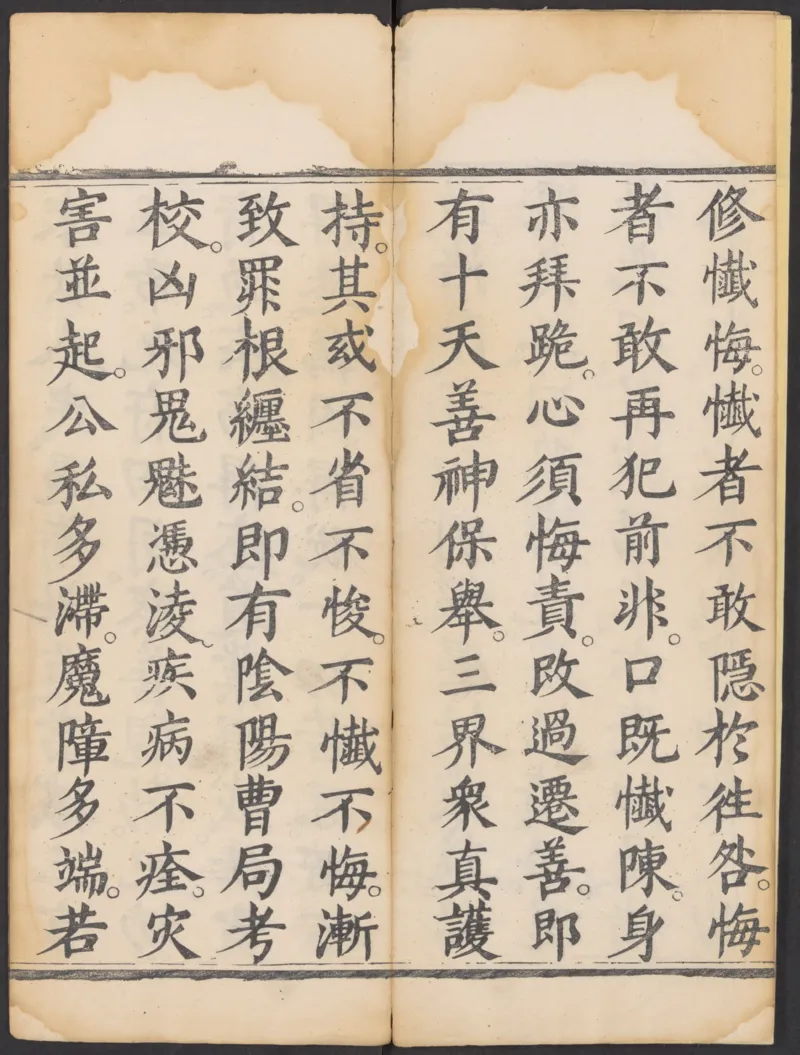 修懴悔。懴者不敢隱於徃咎。悔
者不敢再犯前非。口既懴陳。身
亦拜跪。心須悔責。改過遷善。即
有十天善神保舉。三界衆真護
持。其或不省不悛。不懴不悔。漸
致罪根纏結。即有陰陽曹局考
校。凶邪鬼魅憑淩、疾病不痊。灾
害並起。公私多滯。魔障多端。若